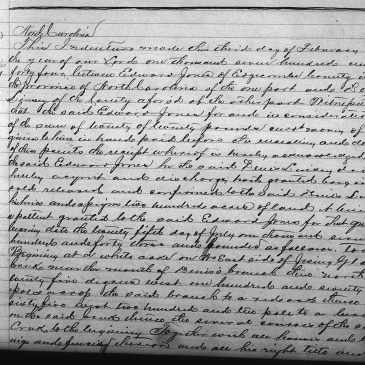 North Carolina
This Indenture made the third day of February
the year of our Lord one thousand seven hundred and
forty four between Edward Jones of Edgecombe County in
the province of North Carolina of the one part and
of the County aforesd of the other part Witnesseth
that the said Edward Jones for and in consideration
of the sum of twenty pounds current money of
to him in hand paid before the ensealing and de
of these presents the receipt whereof is hereby acknowledged
the said Edward Jones he the said
hereby acquit and discharge hath granted bargained
sold released and confirmed to the said
heirs and assigns two hundred acres of land
a patent granted to the said Edward Jones for
bearing date the twenty fifth day of July one thousand seven
hundred and forty three and bounded as follows to
Begining at a white oak on the East side of
Creek near the mouth of branch thence north
twenty five degrees west one hundred and seventy
poles up the said branch to a red oak thence
sixty five west two hundred and ten poles to a
on the said and thence the several courses of the sd
Creek to the begining Together with all houses and
and all his right title and